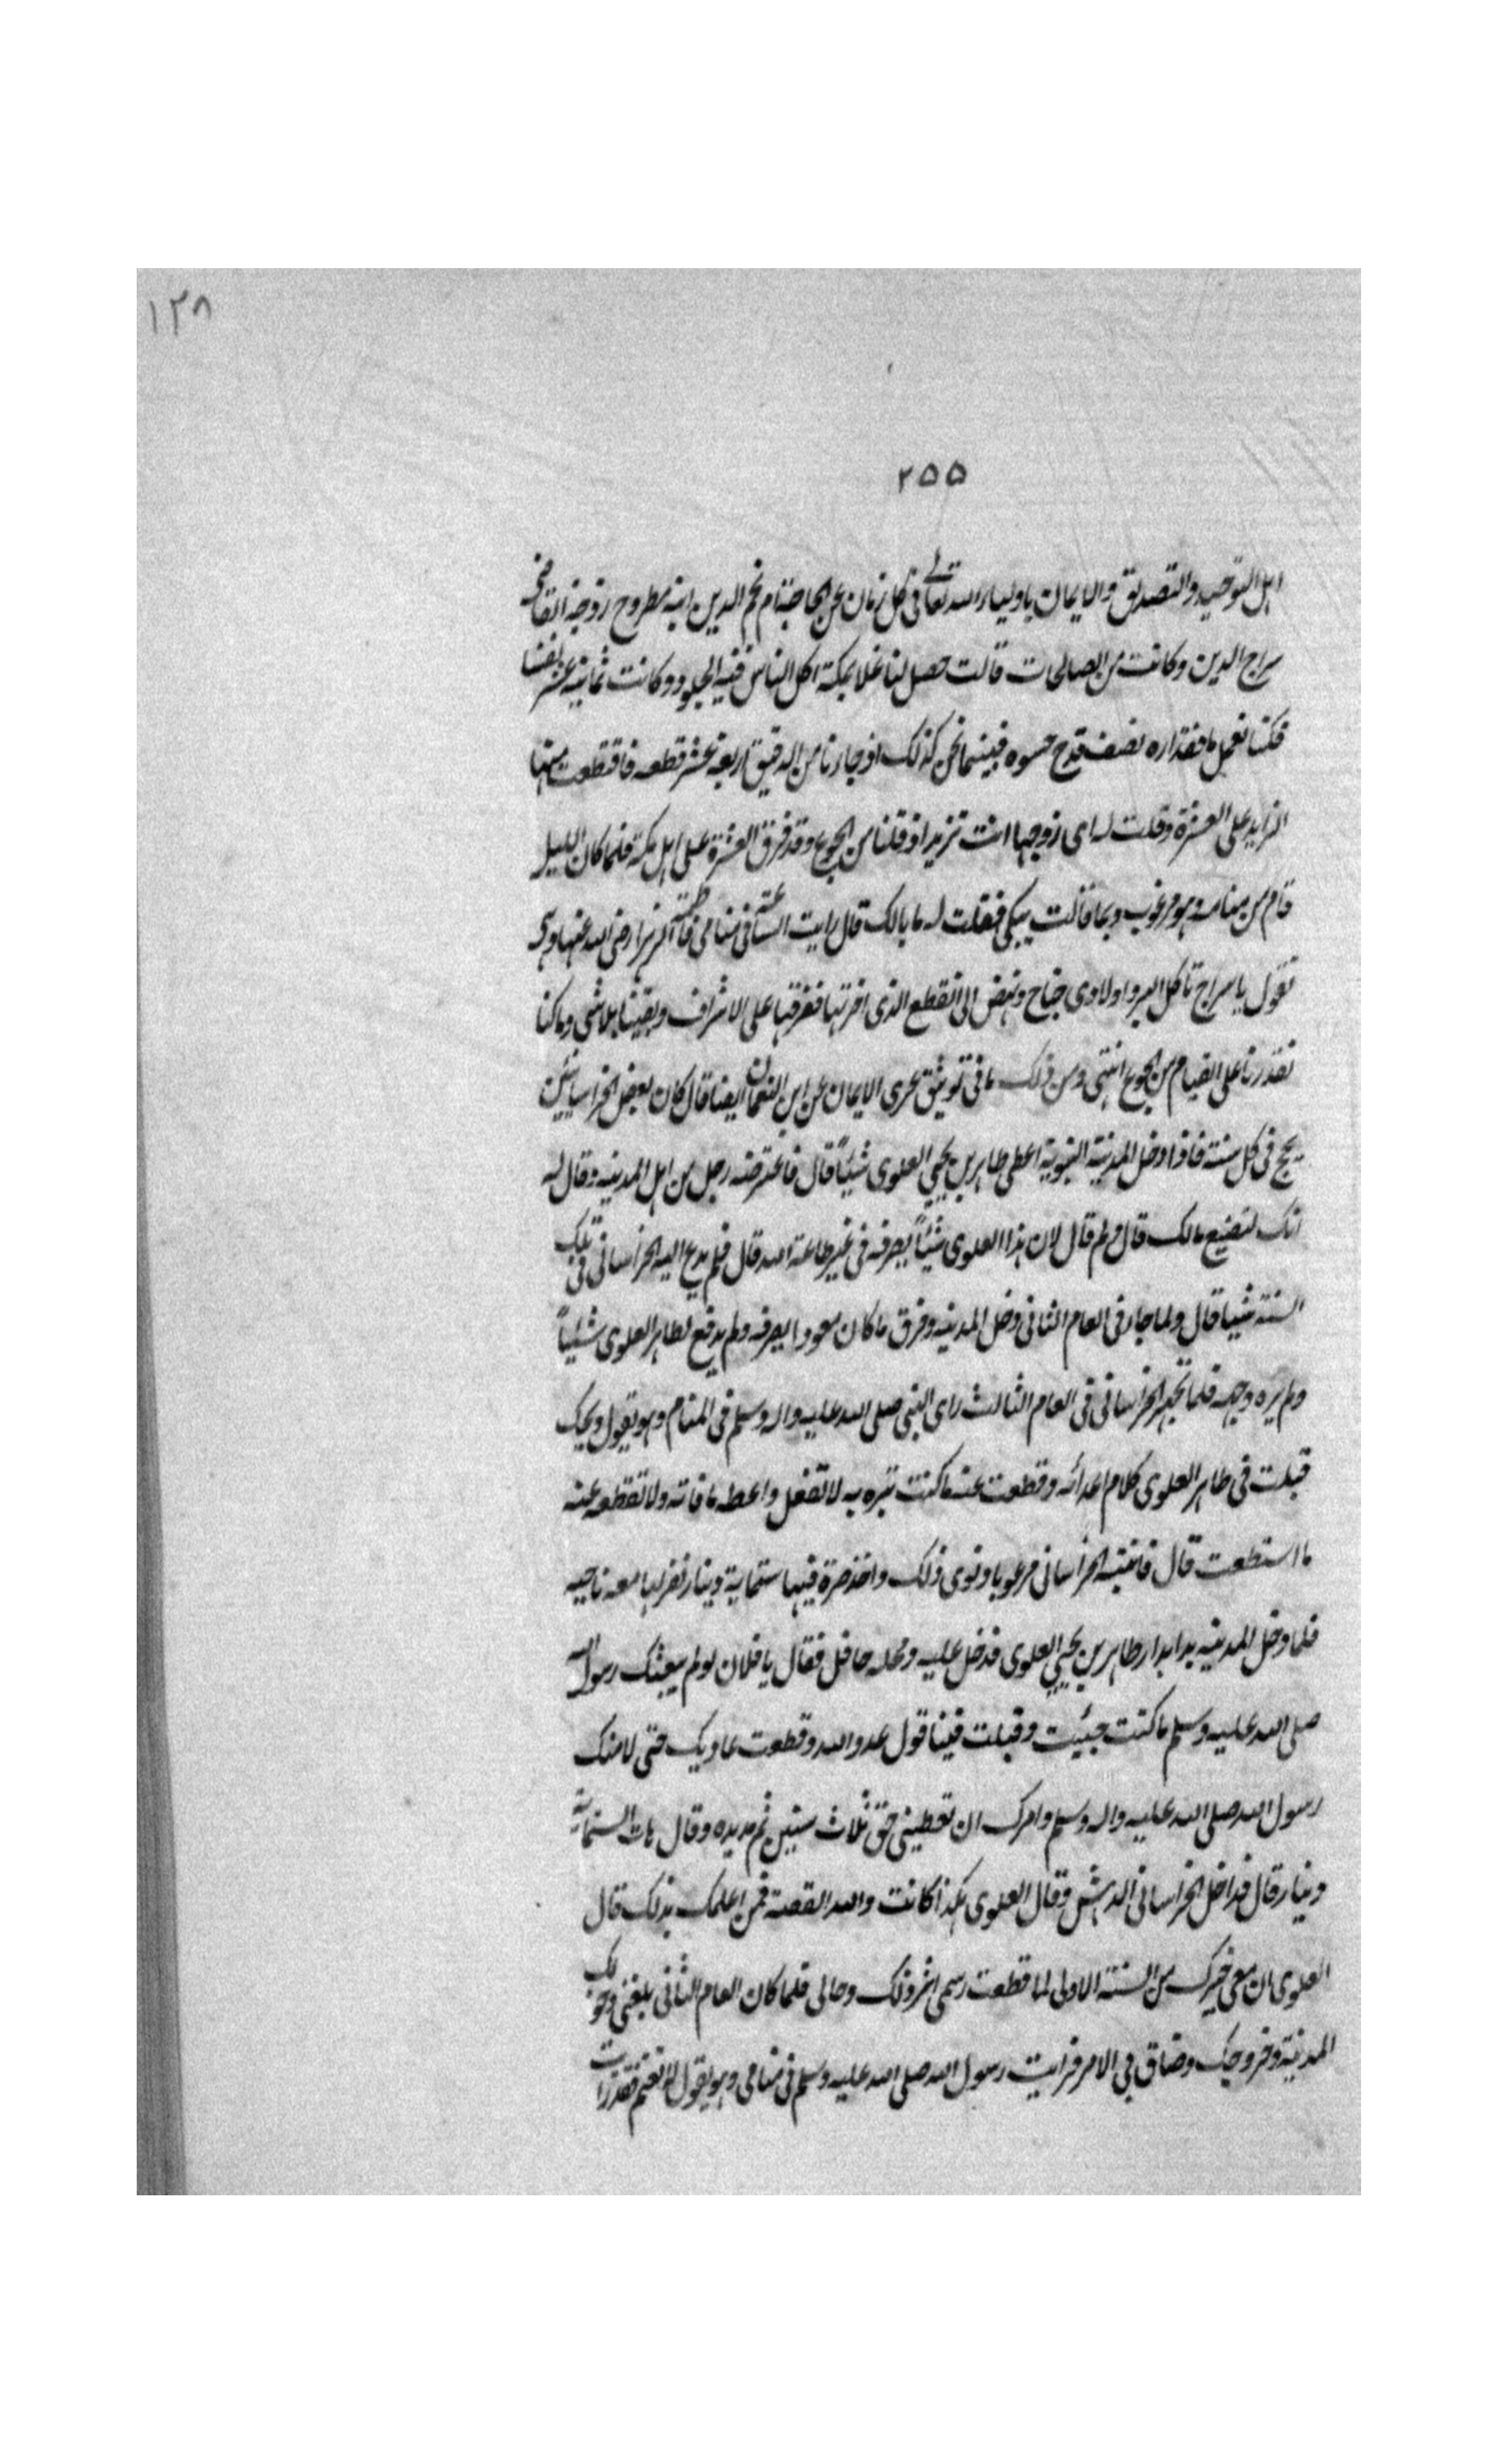 ١٢٨
٢٥٥
اهل التوحيد والتصديق والايمان باولياء الله تعالى فى كل زمان عن الحاجة ام نجم الدين ابنة مطروح زوجة القاضى
سراج الدين وكانت من الصالحات قالت حصل لنا غلا بمكة اكل الناس فيه الجلود وكانت ثمانية عشر نفسا
فكنا نعمل ما مقداره نصف قدح حسوه فبينما نحن كذلك اذ جاءنا من الدقيق اربعة عشر قطعه فاقتطعت منها
الزايد على العشرة وقلت له اى زوجها انت تريد اذ قلنا من الجوع وقد فرق العشرة على اهل مكة فلما كان الليل
قام من منامه وهو مرعوب وبما قالت يبكى فقلت له ما بالك قال رايت الساعة فى منامى فاطمة الزهرا رضى الله عنها وهى
تقول يا سراج تاكل البر واولادى جياح ونهض الى القطع الذى اخرتها ففرقها على الاشراف وبقينا بلا شى وما كنا
نقدرنا على القيام من الجوع انتهى ومن ذلك ما فى توثيق عرى الايمان عن ابن النعمان ايضا قال كان بعض الخراسانيين
يحج فى كل سنة فاذا دخل المدينة النبوية اعطى طاهر بن يحيى العلوى شيئاً قال فاعترضه رجل من اهل المدينه وقال له
انك لتضيع مالك قال ولم قال لان هذا العلوى شيئاً يصرفه فى غير طاعة الله قال فلم يدع اليه الخراسانى فى تلك
السنة شيا قال ولما جاء فى العام الثانى دخل المدينه وفرق ما كان معودا يصرفه ولم يدفع لطاهر العلوى شيئاً
ولم يره وجهه فلما تجهز الخراسانى فى العام الثالث راى النبى صلى الله عليه واله وسلم فى المنام وهو يقول ويحك
قبلت فى طاهر العلوى كلام اعدائه وقطعت عنه ما كنت تبره به لا تفعل واعطه ما فاته ولا تقطعه عنه
ما استطعت قال فانتبه الخراسانى مرعوبا ونوى ذلك واخذ صرة فيها ستماية دينار نفر لها معه ناحيه
فلما دخل المدينه بدا بدار طاهر بن يحيى العلوى فدخل عليه ومحله حافل فقال يا فلان لو لم يبعثك رسول الله
صلى الله عليه وسلم ما كنت جئيت وقبلت فينا قول عدو الله وقطعت عاديك حتى لامنك
رسول الله صلى الله عليه واله وسلم وامرك ان تعطينى حق ثلاث سنين ثم مد يده وقال هات الستماية
دينار قال فداخل الخراسانى الدهش وقال العلوى هكذا كانت والله القصة فمن اعلمك بذلك قال
العلوى ان معى خبرك من السنة الاولى لما قطعت رسمى اثر ذلك وحالى فلما كان العام الثانى بلغنى دخولك
المدينة وخروجك وضاق بى الامر فرايت رسول الله صلى الله عليه وسلم فى منامى وهو يقول لا تغتم فقد رايت